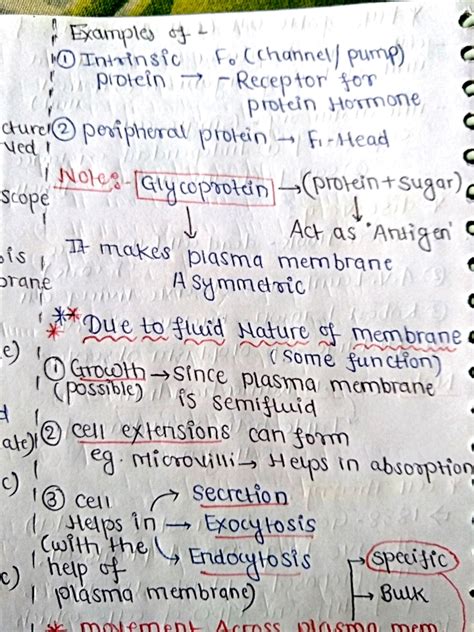 Examples of
① Intrinsic F₀ (channel/pump)
protein → - Receptor for
protein Hormone
② peripheral protein → F₁-Head
ved
Notes- Glycoprotein → (protein+sugar)
scope
Act as 'Antigen'
It makes plasma membrane
Asymmetric
** Due to fluid Nature of membrane
(some function)
① Growth → since plasma membrane
(possible) is semifluid
② cell extensions can form
eg. microvilli → Helps in absorption
③ cell → Secretion
Helps in → Exocytosis
(with the → Endocytosis
help of → specific
plasma membrane) → Bulk
* movement Across plasma mem